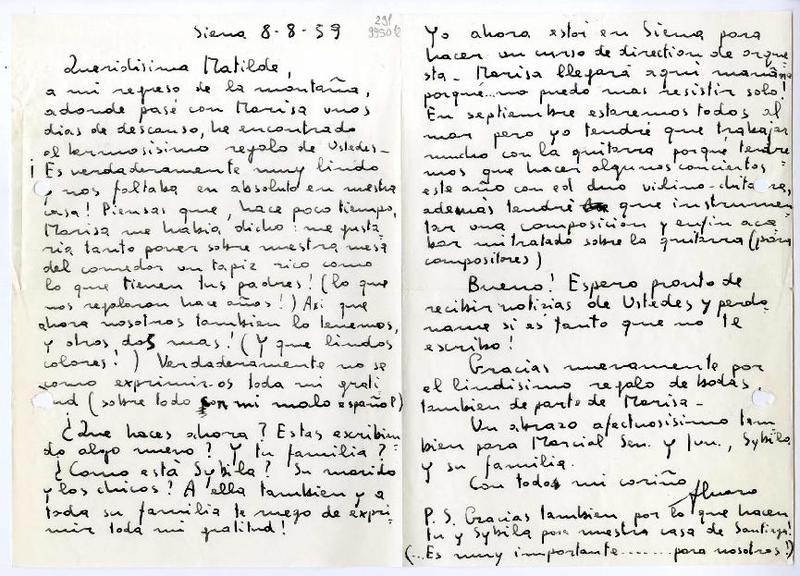 Siena 8-8-59
291
9950 b
Queridisima Matilde,
a mi regreso de la montaña,
adonde pasé con Marisa unos
dias de descanso, he encontrado
el hermosisimo regalo de Ustedes-
¡Es verdaderamente muy lindo
y nos faltaba en absoluto en nuestra
casa! Piensas que, hace poco tiempo,
Marisa me habia dicho: me gusta-
ria tanto poner sobre nuestra mesa
del comedor un tapiz rico como
lo que tienen tus padres! (lo que
nos regalaron hace años!) Asi que
ahora nosotros tambien lo tenemos,
y otros dos mas! (Y que lindos
colores!) Verdaderamente no se
como exprimir-os toda mi grati
ud (sobre todo con mi malo español)
¿Que haces ahora? Estas escribien
do algo nuevo? Y tu familia?
¿Como está Sybila? Su marido
y los chicos? A ella tambien y a
toda su familia te ruego de expri-
mir toda mi gratitud!
Yo ahora estoi en Siena para
hacer un curso de direction de orque
sta- Marisa llegará aqui mañana
porqué...no puedo mas resistir solo!
En septiembre estaremos todos al
mar pero yo tendré que trabajar
mucho con la guitarra porqué tendre
mos que hacer algunos conciertos
este año con el duo violino-chitarra,
además tendré que instrumen-
tar una composición y enfin aca-
bar mi tratado sobre la guitarra (para
compositores)
Bueno! Espero pronto de
recibir notizias de Ustedes y perdo-
name si es tanto que no te
escribo!
Gracias nuevamente por
el lindisimo regalo de bodas,
tambien de parte de Marisa-
Un abrazo afectuosisimo tam
bien para Marcial Sen. y Jun., Sybila
y su familia.
Con todo mi cariño
Alvaro
P.S. Gracias tambien por lo que hacen
tu y Sybila por nuestra casa de Santiago!
(...Es muy importante.......para nosotros!)